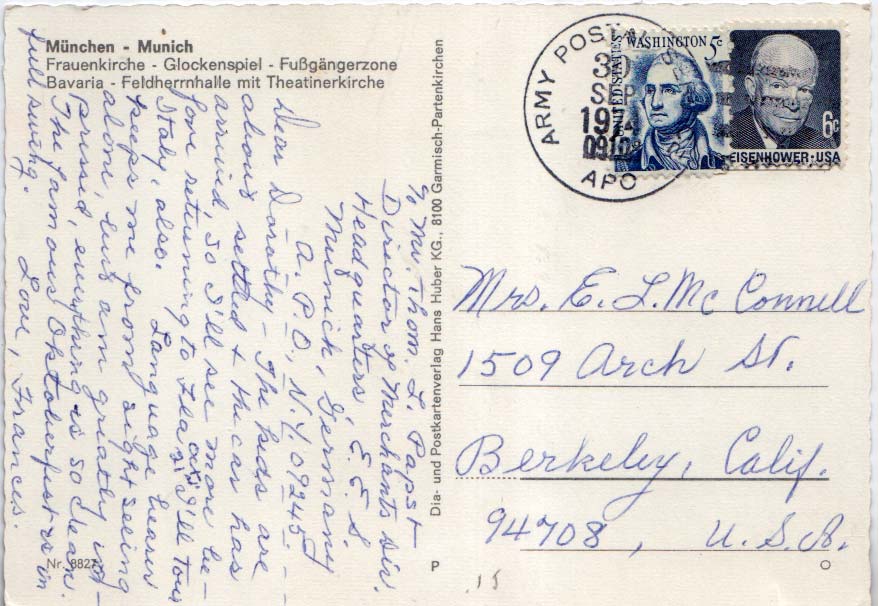 München - Munich
Frauenkirche - Glockenspiel - Fußgängerzone
Bavaria - Feldherrnhalle mit Theatinerkirche
ARMY POSTAL
SEP
0910
APO
UNITED STATES
WASHINGTON 5c
6c
EISENHOWER·USA
c/o Mr. Thom. L. Papst
Director of Merchants Div.
Headquarters, E. E. S.
Munich, Germany
A. P. O., N. Y. 09245
Dear Dorothy - The kids are
about settled & the car has
arrived, so I'll see more be-
fore returning to Fla and I'll tour
Italy, also. Language barrier
keeps me from sight seeing
alone, but am greatly im-
pressed, everything is so clean.
The famous Octoberfest is in
full swing. Love, Frances.
Dia- und Postkartenverlag Hans Huber KG., 8100 Garmisch-Partenkirchen
Mrs. E. L. Mc Connell
1509 Arch St.
Berkeley, Calif.
94708, U. S. A.
Nr. 8827
P
.15
O